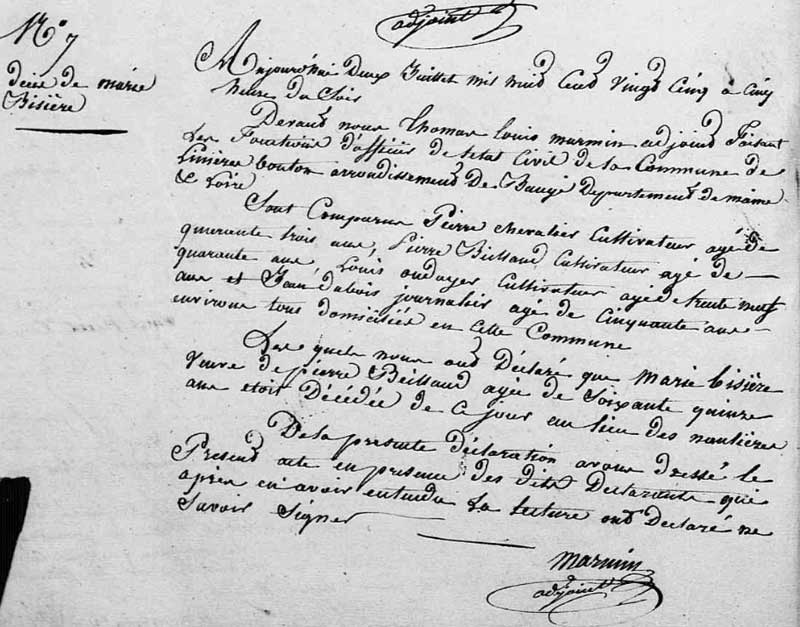 adjoint
N° 7
décè de marie
Bisière
Aujourd'hui Deux Juillet mil huid Cend vingd Cinq a Cinq
heure du Soir
Devand nous Thomas Louis marmin adjoind faisant
Les Fonctions d'officié de letat Civil de la Commune de
Linières bouton arrondissemend De Baugé Departement de maine
& Loire
Sont Comparus Pierre chevalier Cultivateur agé de
quarante trois ans, Pierre Beillaud Cultivateur agé de
quarante ans, Louis oudayer Cultivateur agé de trente neuf
ans et Jean dubois journalier agé de Cinquante ans
environs tous domiciliés en cette Commune
Les quels nous ond Déclaré que marie bisière
veuve de pierre Beillaud agée de Soixante quinze
ans etoit Décédée de ce jour au lieu des naulières
De la presente déclaration avons dressé le
Presend acte en presence des dits Declarants qui
après en avoir entendu La lecture ond Declaré ne
Savoir Signer
marmin
adjoint